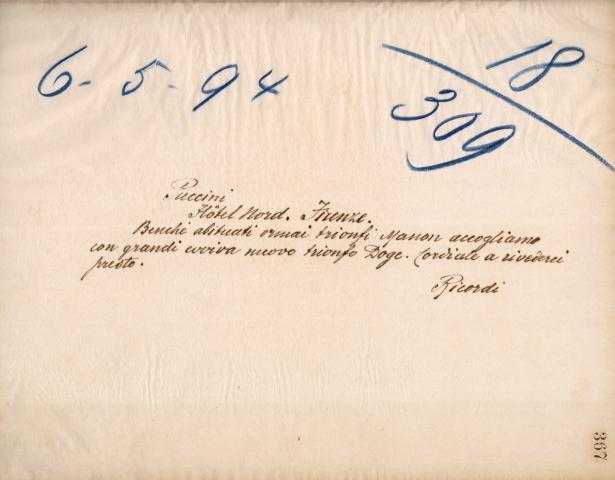 6-5-94
18
309
Puccini
Hôtel Nord. Firenze.
Benchè abituati ormai trionfi Manon accogliamo
con grandi evviva nuovo trionfo Doge. Cordiale a rivederci
presto.
Ricordi
367